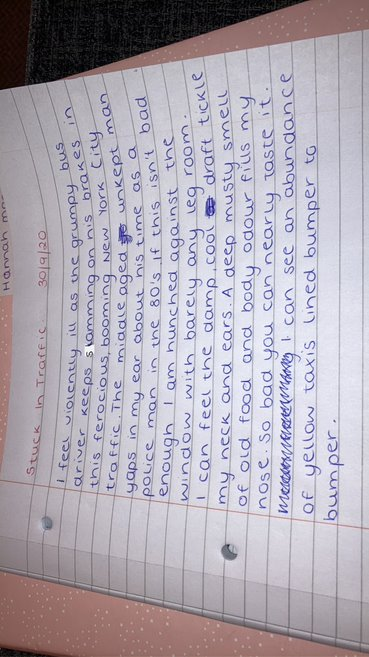 Hannah
Stuck In Traffic 30/9/20
I feel violently ill as the grumpy bus
driver keeps slamming on his brakes in
this ferocious, booming New York City
traffic. The middle aged unkept man
yaps in my ear about his time as a
police man in the 80's. If this isn't bad
enough I am hunched against the
window with barely any leg room.
I can feel the damp, cool draft tickle
my neck and ears. A deep musty smell
of old food and body odour fills my
nose. So bad you can nearly taste it.
I can see an abundance
of yellow taxis lined bumper to
bumper.